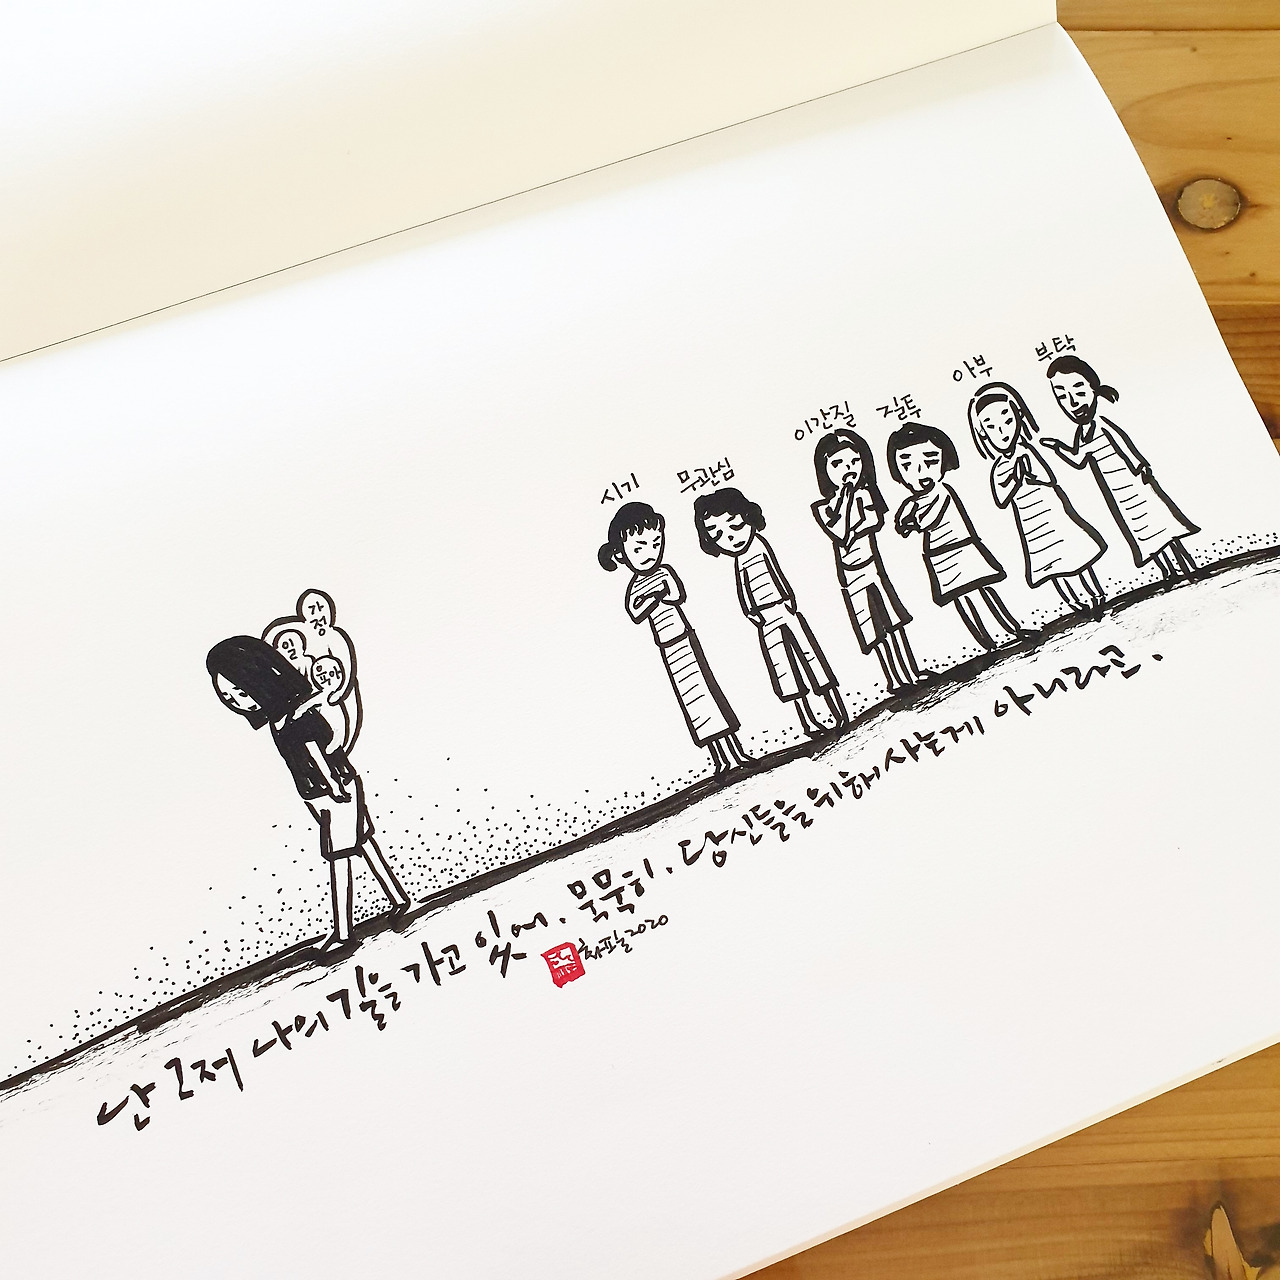 부탁
아부
질투
이간질
무관심
시기
가정
일
육아
난 그저 나의 길을 가고 있어. 묵묵히. 당신들을 위해 사는게 아니라고.
차필2020